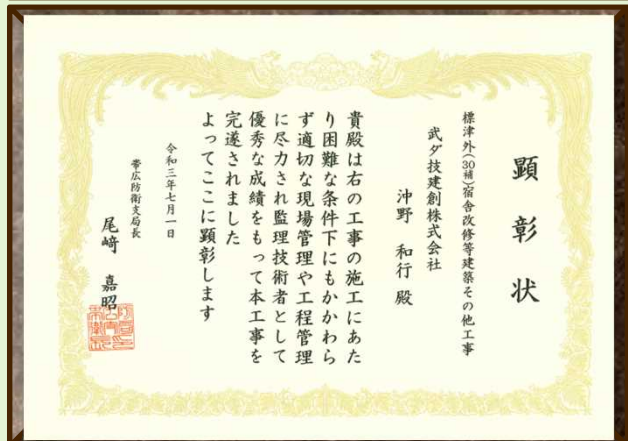 顕彰状
標津外(30補)宿舎改修等建築その他工事
武ダ技建創株式会社
沖野 和行 殿
貴殿は右の工事の施工にあた
り困難な条件下にもかかわら
ず適切な現場管理や工程管理
に尽力され監理技術者として
優秀な成績をもって本工事を
完遂されました
よってここに顕彰します
令和三年七月一日
帯広防衛支局長
尾崎 嘉昭